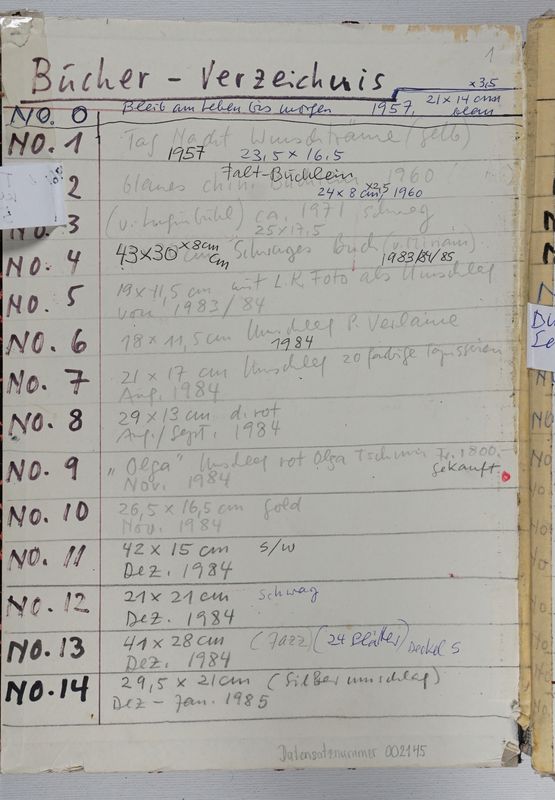 1
Bücher - Verzeichnis
NO. 0 Bleib am Leben bis morgen 1957, 21 x 14 cm x 3,5 blau
NO. 1 Tag Nacht Wunschträume (gelb)
1957 23,5 x 16,5
Falt-Büchlein
2 blaues chin. 1960
24 x 8 cm x2,5, 1960
3 ca. 1971 schwarz
25 x 17,5
NO. 4 43x30 x 8cm cm Schwarzes Buch
1983/84/85
NO. 5 19 x 11,5 cm mit L.R. Foto als Umschlag
vom 1983/84
NO. 6 18 x 11,5 cm Umschlag P. Verlaine
1984
NO. 7 21 x 17 cm Umschlag 20 farbige
Aug. 1984
NO. 8 29 x 13 cm d. rot
Aug./Sept. 1984
NO. 9 „Olga" Umschlag rot Olga Fr. 1800.-
Nov. 1984 gekauft.
NO. 10 26,5 x 16,5 cm gold
Nov. 1984
NO. 11 42 x 15 cm s/w
Dez. 1984
NO. 12 21 x 21 cm schwarz
Dez. 1984
NO. 13 41 x 28 cm (Jazz) (24 Blätter) Deckel S
Dez. 1984
NO. 14 29,5 x 21 cm (Silberumschlag)
Dez - Jan. 1985
Datensatznummer 002145